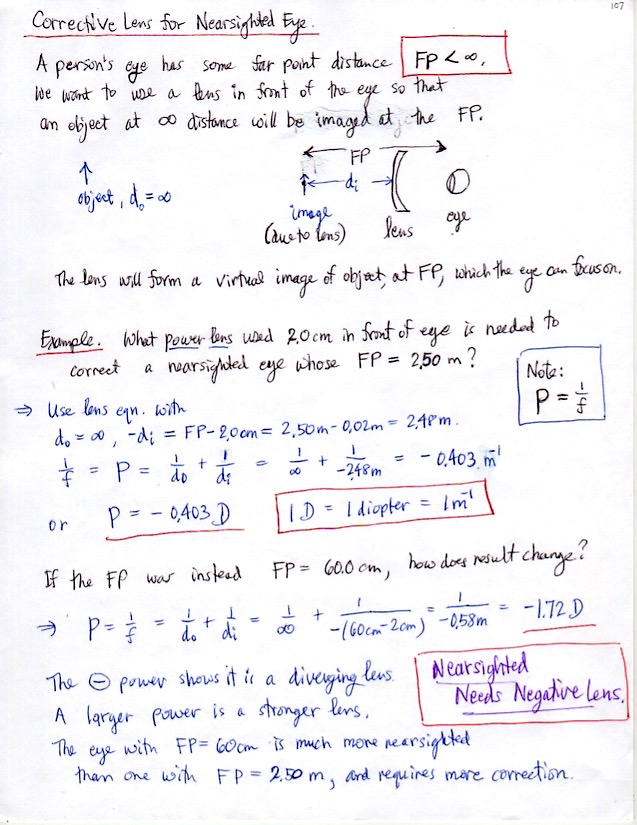 107
Corrective Lens for Nearsighted Eye.
A person's eye has some far point distance FP < ∞.
We want to use a lens in front of the eye so that
an object at ∞ distance will be imaged at the FP.
FP
di
object, do = ∞
image
(due to lens)
lens
eye
The lens will form a virtual image of object, at FP, which the eye can focus on.
Example. What power lens used 2.0 cm in front of eye is needed to
correct a nearsighted eye whose FP = 2.50 m?
Note:
P = 1/f
⇒ Use lens eqn. with
do = ∞, -di = FP - 2.0cm = 2.50m - 0.02m = 2.48m.
1/f = P = 1/do + 1/di = 1/∞ + 1/-2.48m = -0.403 m⁻¹
or P = -0.403 D
1 D = 1 diopter = 1 m⁻¹
If the FP was instead FP = 60.0 cm, how does result change?
⇒ P = 1/f = 1/do + 1/di = 1/∞ + 1/-(60cm-2cm) = 1/-0.58m = -1.72 D
The ⊖ power shows it is a diverging lens.
A larger power is a stronger lens.
The eye with FP = 60cm is much more nearsighted
than one with FP = 2.50 m, and requires more correction.
Nearsighted
Needs Negative Lens.